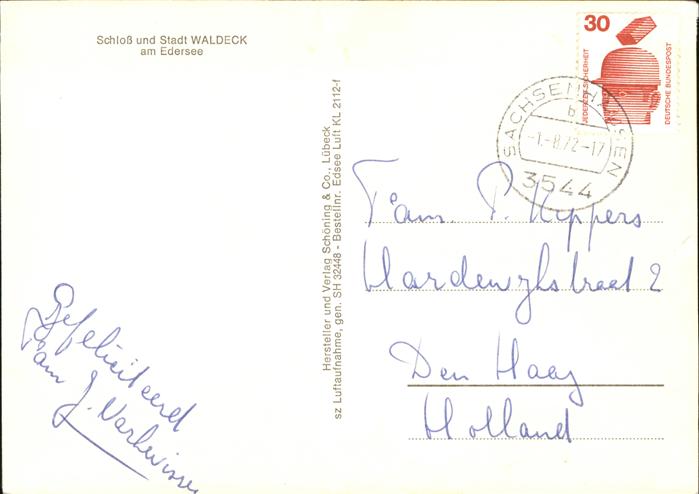 Schloß und Stadt WALDECK
am Edersee
30
JEDERZEIT SICHERHEIT
DEUTSCHE BUNDESPOST
SACHSENHAUSEN
b
-1.-8.72-17
3544
Hersteller und Verlag Schöning & Co., Lübeck
sz Luftaufnahme, gen. SH 32448 - Bestellnr. Edsee Luft KL 2112-f
Fam. P. Kippers
Harderwykstraat 2
Den Haag
Holland
Gefeliciteerd
Fam J.